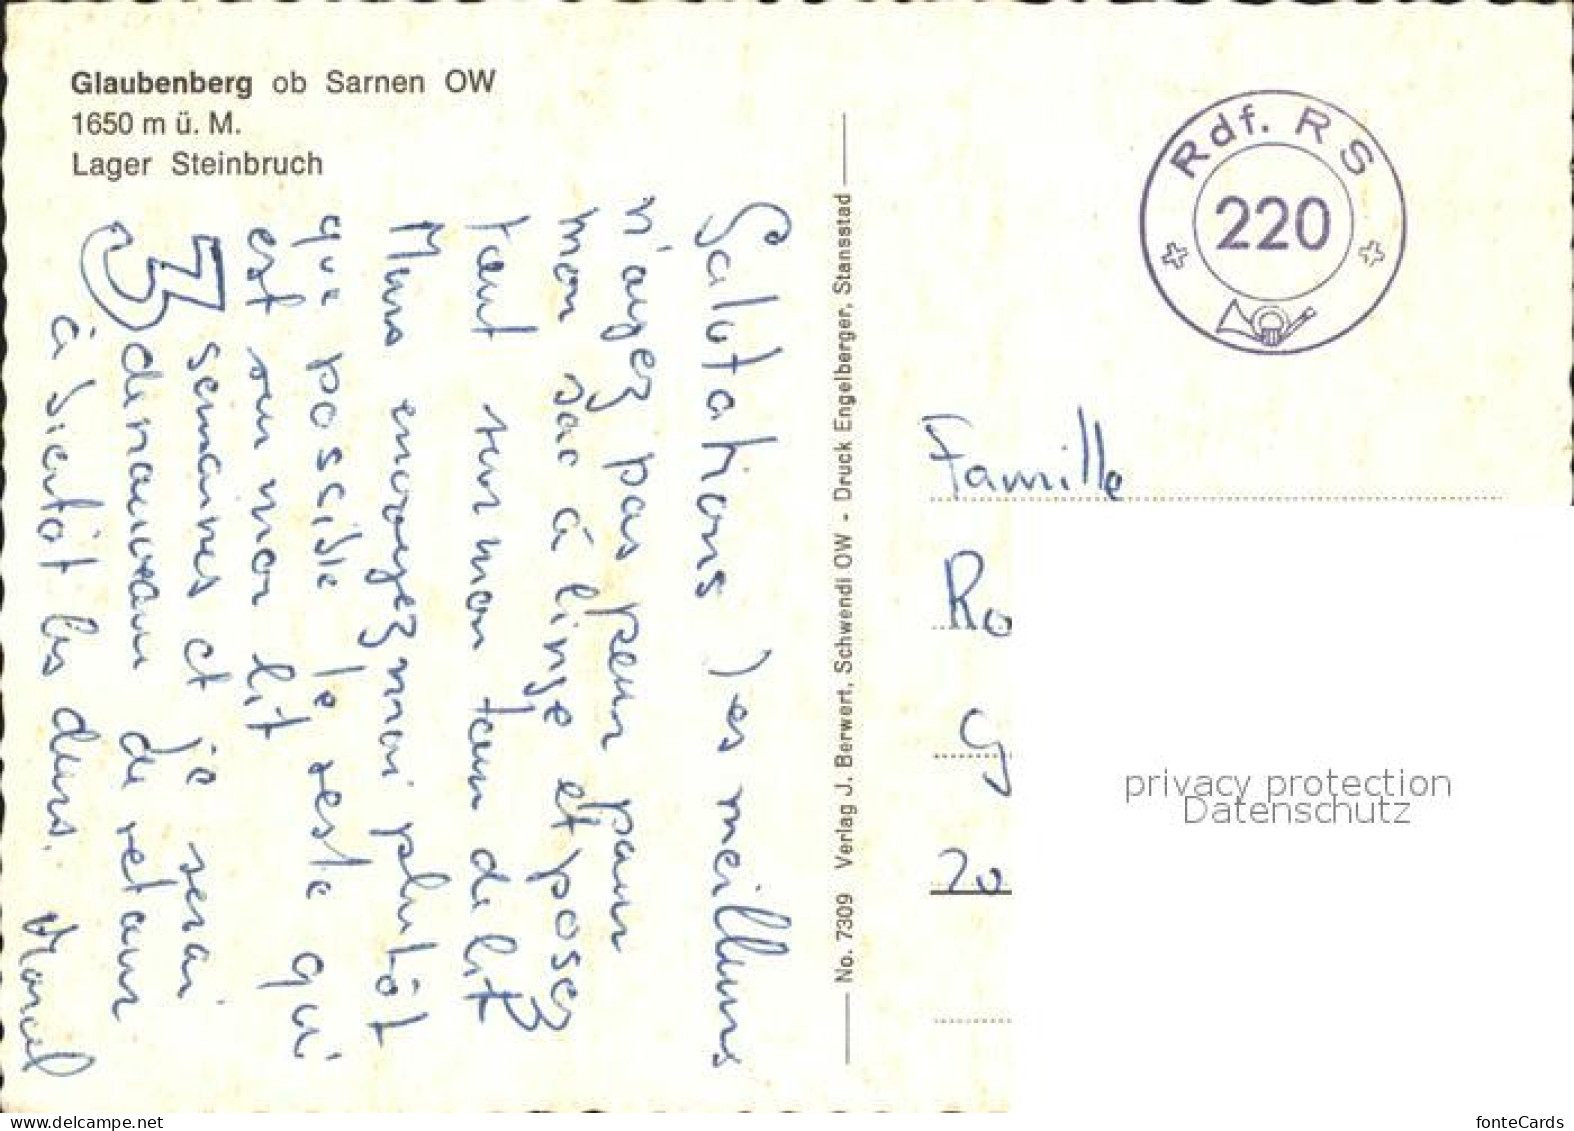 Glaubenberg ob Sarnen OW
1650 m ü. M.
Lager Steinbruch
Salutations les meilleurs
n'ayez pas peur pour
mon sac à linge et posez
tout sur mon tour de lit
Mais envoyez moi plutôt
que possible le reste qui
est sur mon lit
3 semaines et je serai
de nouveau de retour
à bientôt les deurs. Marcel
No. 7309 Verlag J. Berwert, Schwendi OW - Druck Engelberger, Stansstad
Rdf. RS
220
Famille
Ro
G
20
privacy protection
Datenschutz
www.delcampe.net
fonteCards